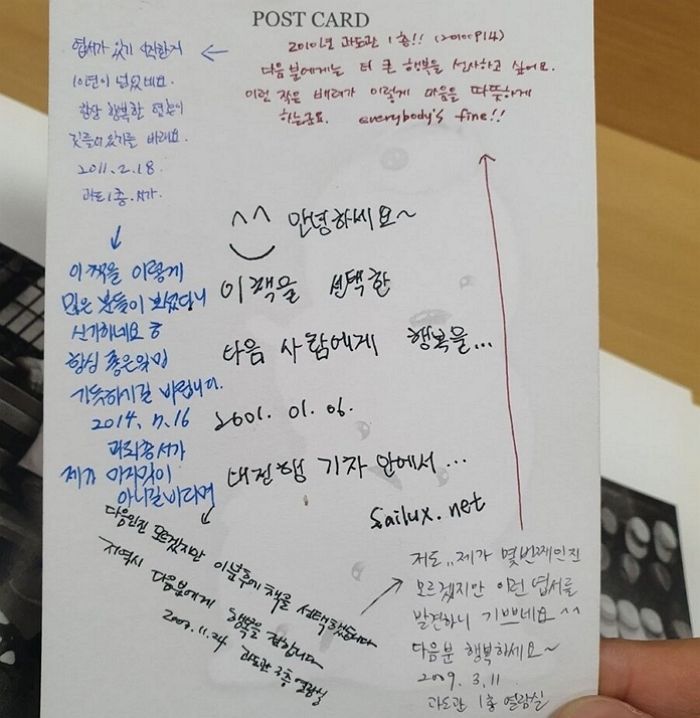 POST CARD
2010년 과도관 1층!! (20100914)
다음 분에게는 더 큰 행복을 선사하고 싶어요.
이런 작은 배려가 이렇게 마음을 따뜻하게
하는군요. everybody's fine!!
엽서가 있기 시작한지
10년이 넘었네요.
항상 행복한 일들이
깃들어 있기를 바래요.
2011. 2. 18.
과도 1층. 서가
이 책을 이렇게
많은 분들이 보셨다니
신기하네요 ㅎ
항상 좋은일만
가득하기길 바랍니다.
2014. 7. 16
서가
제가 마지막이
아니길 바라며
^^ 안녕하세요~
이 책을 선택한
다음 사람에게 행복을...
2001. 01. 06.
대전행 기차 안에서...
Sailux.net
다음인진 모르겠지만 이분후에 책을 선택했습니다
저역시 다음분에게 행복을 전합니다
2007. 11. 24 과도관 3층 열람실
저도,, 제가 몇번째인진
모르겠지만 이런 엽서를
발견하니 기쁘네요 ^^
다음분 행복하세요~
2009. 3. 11
과도관 1층 열람실